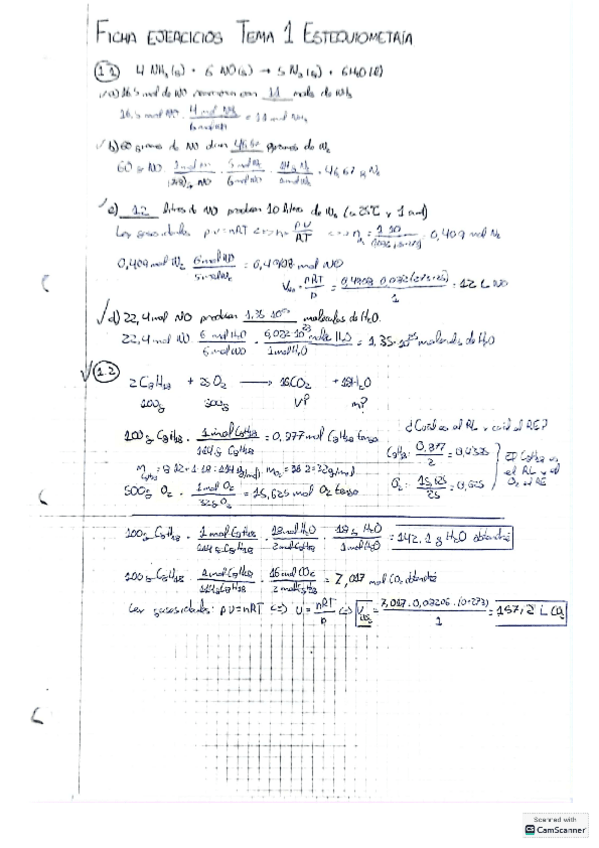 FICHA EJERCICIOS TEMA 1 ESTEQUIOMETRÍA
1.1 4 NH3(g) + 6 NO(g) → 5 N2(g) + 6 H2O(l)
a) 16.5 mol de NO reaccionan con 11 mols de NH3
16.5 mol NO · 4 mol NH3 / 6 mol NO = 11 mol NH3
b) 60 gramos de NO dan 46.67 gramos de N2
60 g NO · 1 mol NO / NO · 5 mol N2 / 6 mol NO · N2 / mol N2 = 46,67 g N2
c) 12 litros de NO producen 10 litros de N2 (a 25ºC y 1 atm)
Ley gases ideales pV=nRT <=> n = pV / RT <=> n = 1·10 / = 0,409 mol N2
0,409 mol N2 · 6 mol NO / 5 mol N2 = 0,4908 mol NO
V = nRT / p = 0,4908·0,082·(273+25) / 1 = 12 L NO
d) 22,4 mol NO producen 1,35·10 moléculas de H2O.
22,4 mol NO · 6 mol H2O / 6 mol NO · 6,022·10^23 molec H2O / 1 mol H2O = 1,35·10 moléculas de H2O
1.2
2 C8H18 + 25 O2 → 16 CO2 + 18 H2O
100g 500g V? m?
¿Cuál es el RL y cuál el RE?
100 g C8H18 · 1 mol C8H18 / 114 g C8H18 = 0,877 mol C8H18 tengo
C8H18: 0,877 / 2 = 0,4385
El C8H18 es el RL y el O2 el RE
M C8H18 = 8·12+1·18=114 g/mol; M O2 = 16·2=32 g/mol
500 g O2 · 1 mol O2 / 32 g O2 = 15,625 mol O2 tengo
O2: 15,625 / 25 = 0,625
100 g C8H18 · 1 mol C8H18 / 114 g C8H18 · 18 mol H2O / 2 mol C8H18 · 18 g H2O / 1 mol H2O = 142,1 g H2O obtendré
100 g C8H18 · 1 mol C8H18 / 114 g C8H18 · 16 mol CO2 / 2 mol C8H18 = 7,017 mol CO2 obtendré
Ley gases ideales: pV=nRT <=> V = nRT / p <=> V CO2 = 7,017·0,08206·(0+273) / 1 = 157,2 L CO2
Scanned with
CamScanner